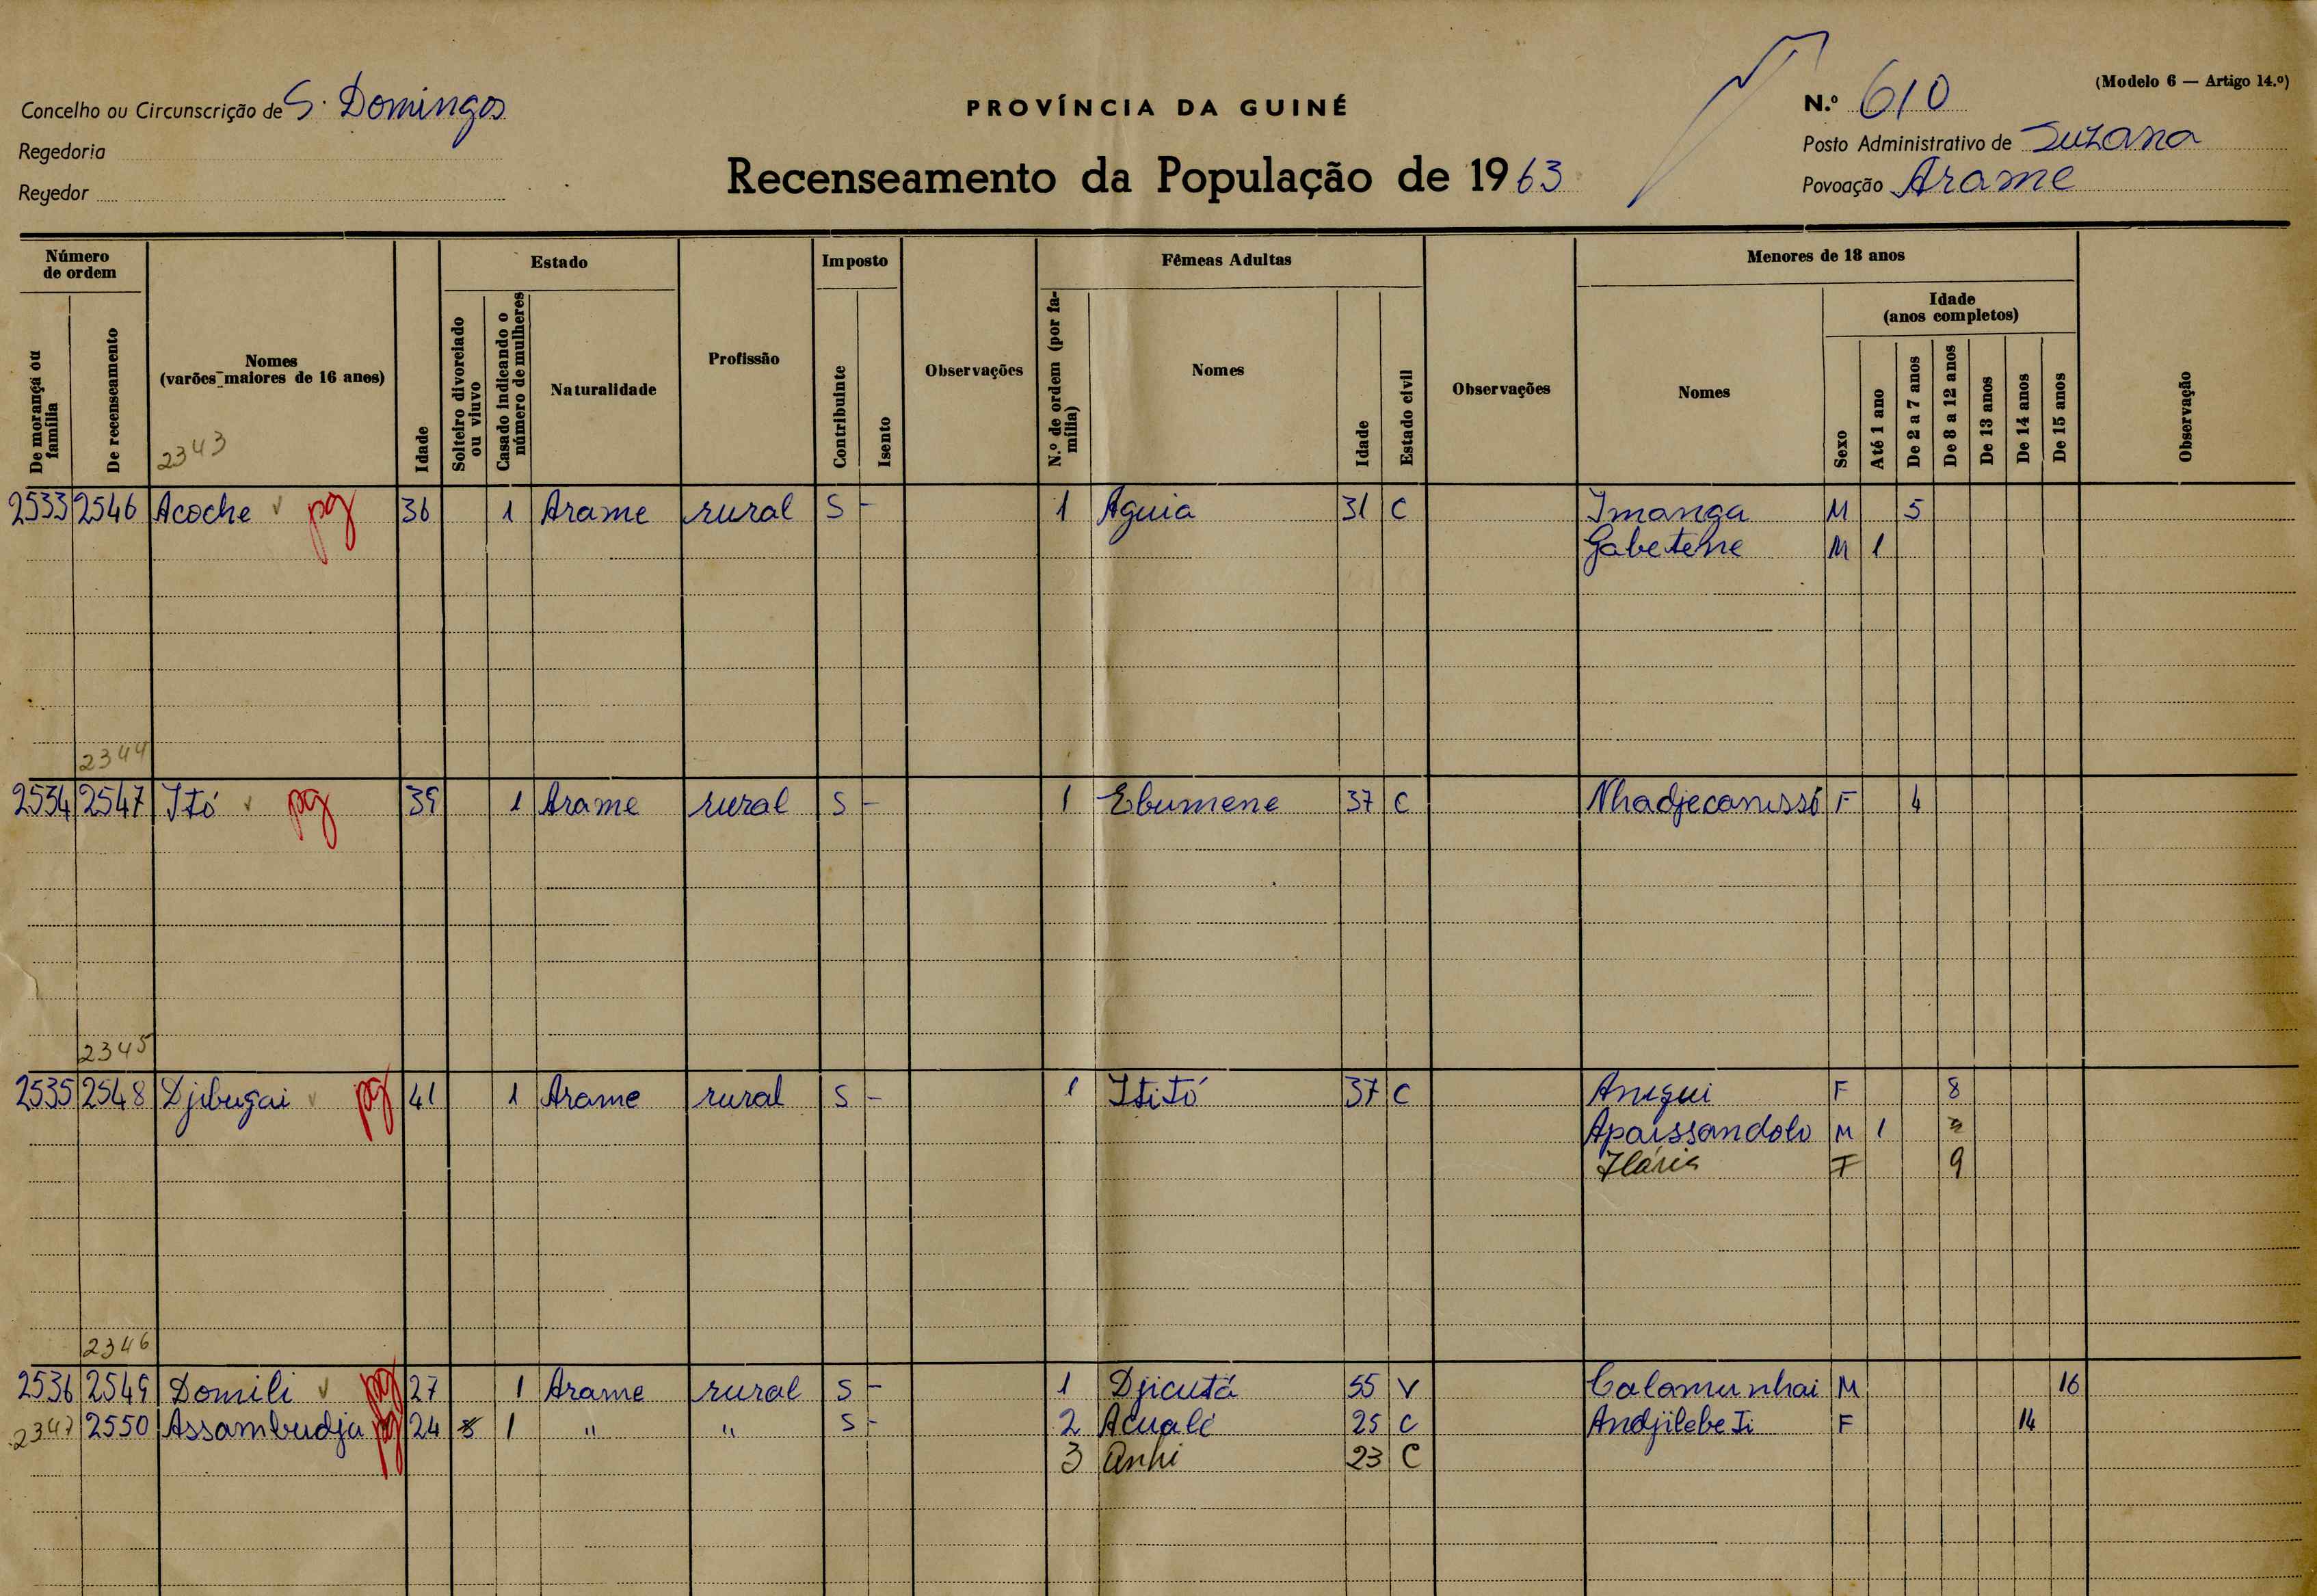 (Modelo 6 — Artigo 14.º)
Concelho ou Circunscrição de S. Domingos
PROVÍNCIA DA GUINÉ
N.º 610
Regedoria
Posto Administrativo de Suzana
Regedor
Recenseamento da População de 1963
Povoação Arame
Número de ordem
Estado
Imposto
Fêmeas Adultas
Menores de 18 anos
Idade (anos completos)
De morança ou família
De recenseamento
Nomes (varões maiores de 16 anos)
Idade
Solteiro divorciado ou viuvo
Casado indicando o número de mulheres
Naturalidade
Profissão
Contribuinte
Isento
Observações
N.º de ordem (por família)
Nomes
Idade
Estado civil
Observações
Nomes
Sexo
Até 1 ano
De 2 a 7 anos
De 8 a 12 anos
De 13 anos
De 14 anos
De 15 anos
Observação
2343
2533 2546 Acoche pg 36 1 Arame rural S - 1 Aguia 31 C Imanga M 5
Gabetene M 1
2344
2534 2547 Itó pg 39 1 Arame rural S - 1 Ebumene 37 C Nhadjecanussó F 4
2345
2535 2548 Djibugai pg 41 1 Arame rural S - 1 Ititó 37 C Anequi F 8
Apaissandolo M 1
Ilária F 9
2346
2536 2549 Domili pg 27 1 Arame rural S - 1 Djicutá 55 V Calamunhai M 16
2347 2550 Assambudja pg 24 1 " " S - 2 Acualé 25 C Andjilebeti F 14
3 Anhi 23 C